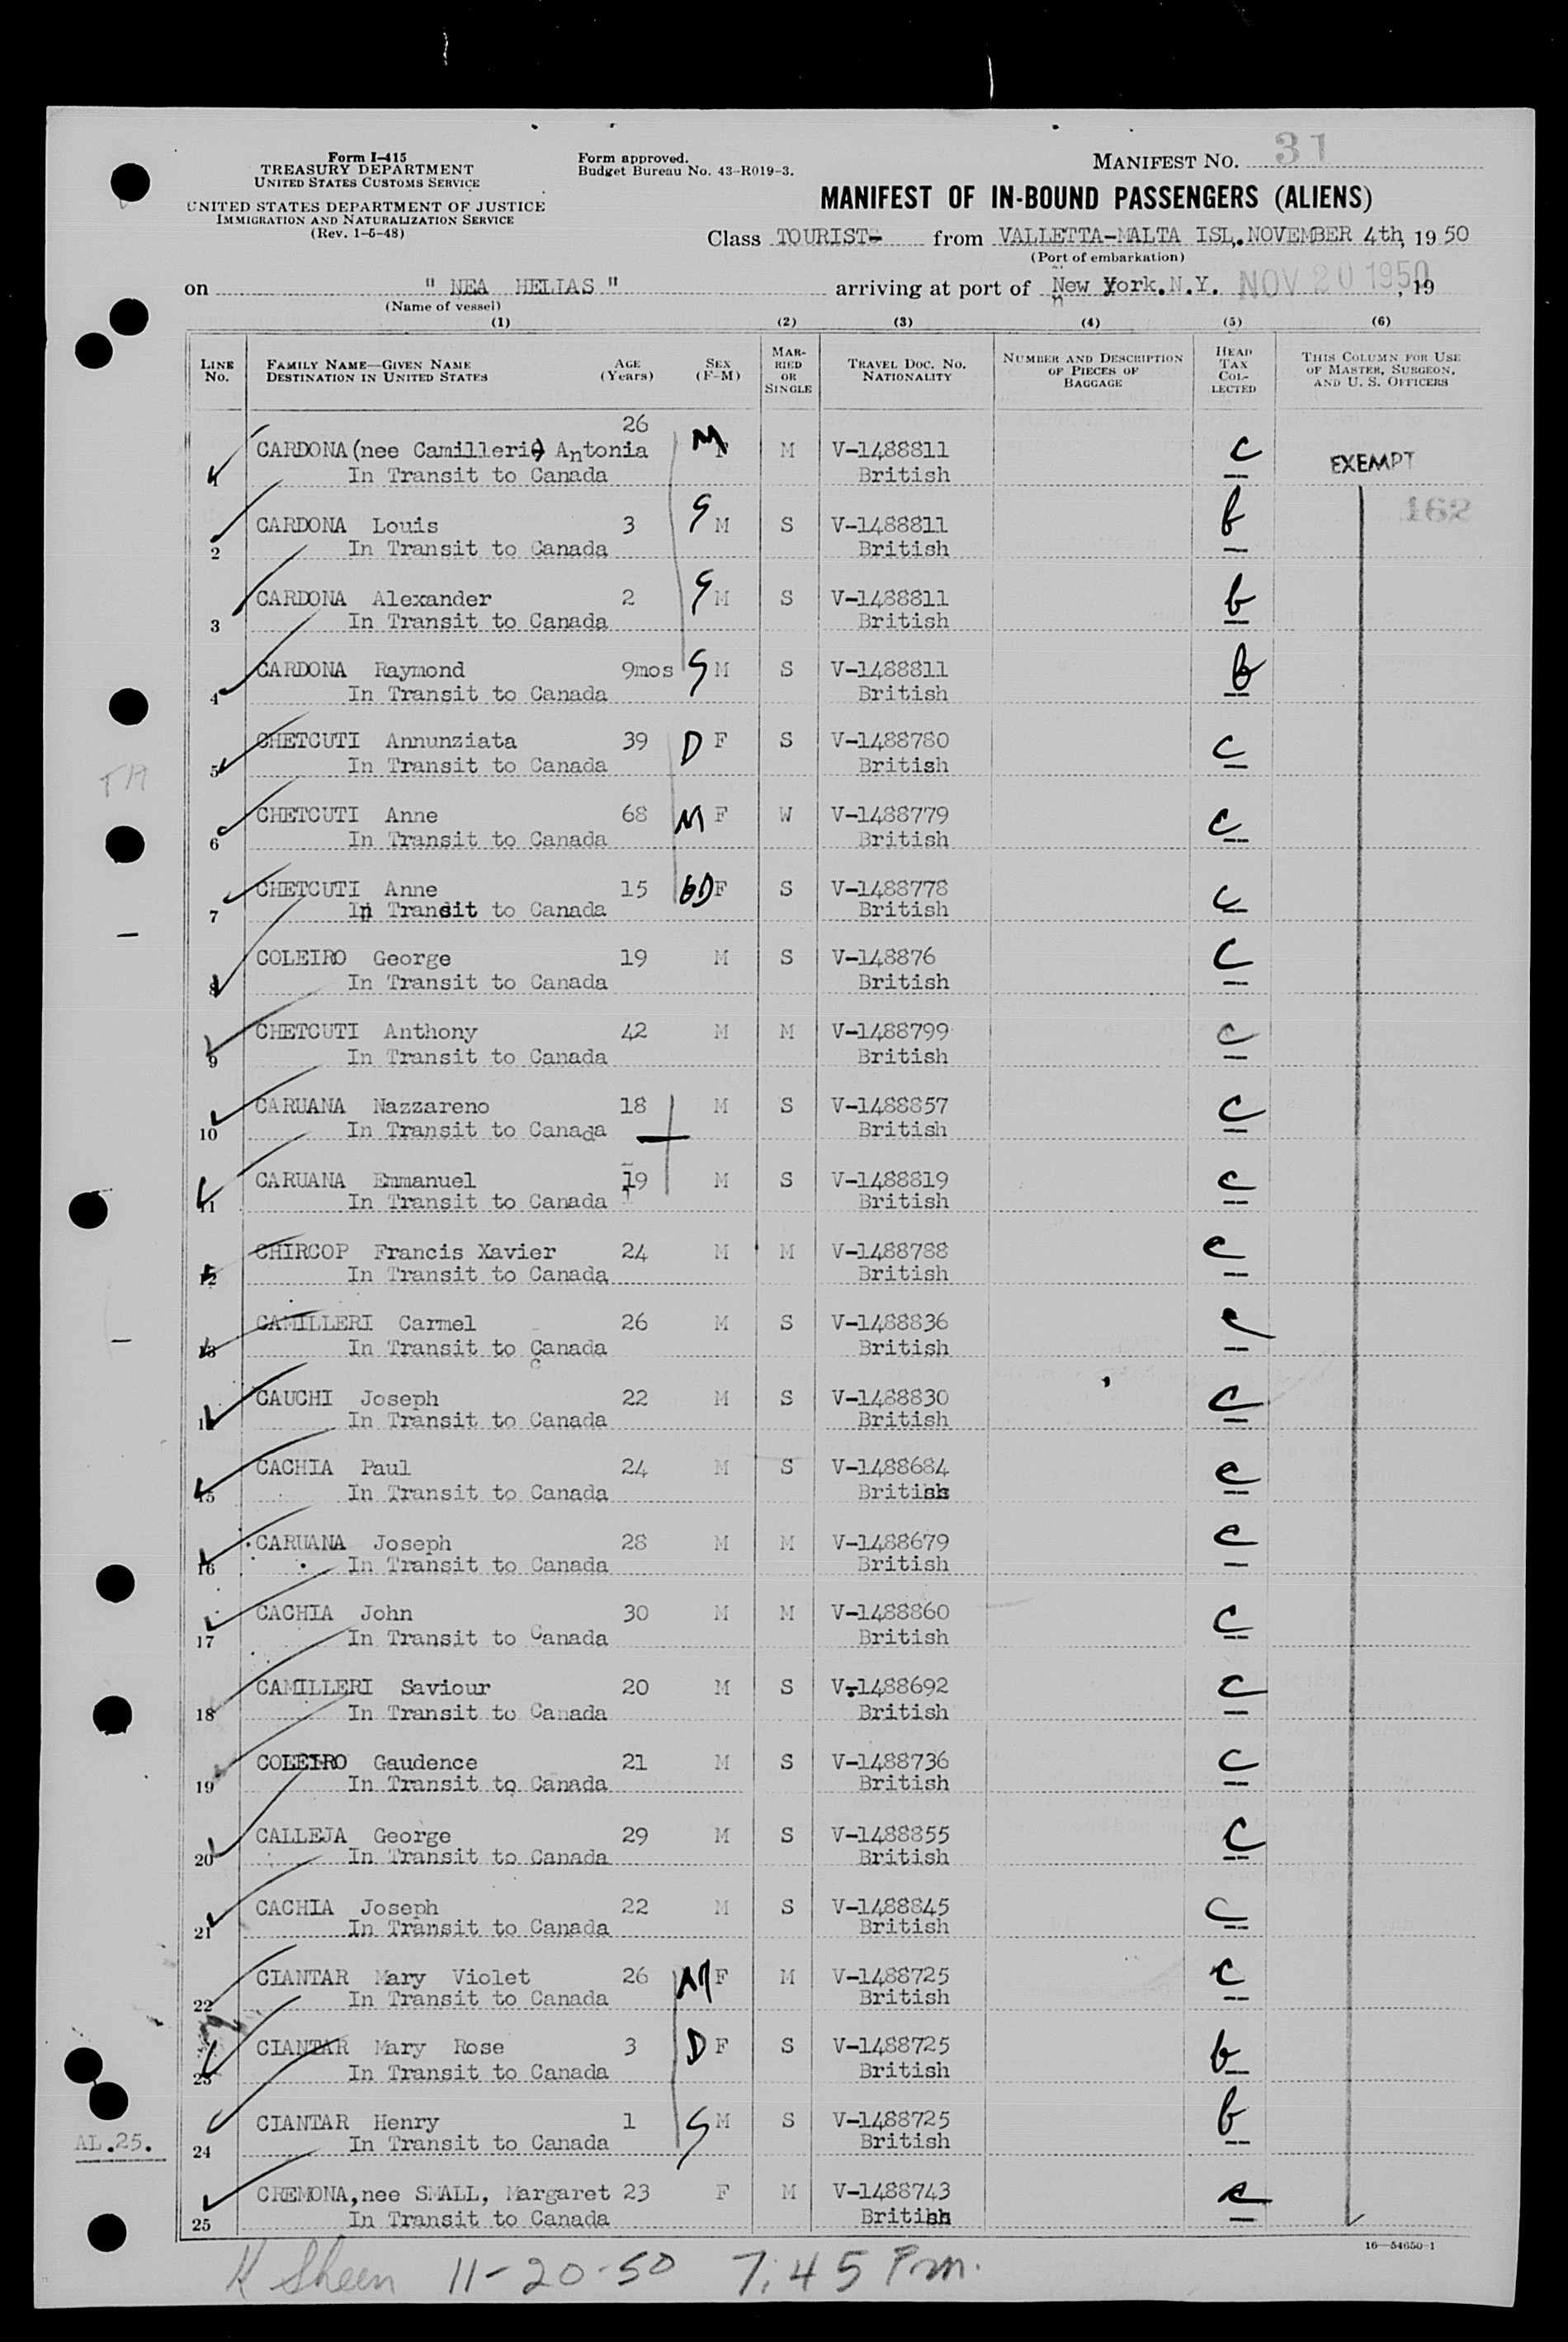 Form I-415
TREASURY DEPARTMENT
UNITED STATES CUSTOMS SERVICE
UNITED STATES DEPARTMENT OF JUSTICE
IMMIGRATION AND NATURALIZATION SERVICE
(Rev. 1-5-48)
Form approved.
Budget Bureau No. 43-R019-3.
MANIFEST NO. 31
MANIFEST OF IN-BOUND PASSENGERS (ALIENS)
Class TOURIST- from VALLETTA-MALTA ISL. NOVEMBER 4th, 1950
(Port of embarkation)
on " NEA HELIAS " arriving at port of New York. N.Y. NOV 20 1950, 19
(Name of vessel)
(1) (2) (3) (4) (5) (6)
LINE No. FAMILY NAME—GIVEN NAME DESTINATION IN UNITED STATES AGE (Years) SEX (F-M) MARRIED OR SINGLE TRAVEL DOC. No. NATIONALITY NUMBER AND DESCRIPTION OF PIECES OF BAGGAGE HEAD TAX COLLECTED THIS COLUMN FOR USE OF MASTER, SURGEON, AND U. S. OFFICERS
26
CARDONA (nee Camilleri) Antonia M F M V-1488811 c EXEMPT
1 In Transit to Canada British
162
CARDONA Louis 3 S M S V-1488811 b
2 In Transit to Canada British
CARDONA Alexander 2 S M S V-1488811 b
3 In Transit to Canada British
CARDONA Raymond 9mos S M S V-1488811 b
4 In Transit to Canada British
CHETCUTI Annunziata 39 D F S V-1488780 c
5 In Transit to Canada British
TA
CHETCUTI Anne 68 M F W V-1488779 c
6 In Transit to Canada British
CHETCUTI Anne 15 GD F S V-1488778 c
7 In Transit to Canada British
COLEIRO George 19 M S V-148876 c
8 In Transit to Canada British
CHETCUTI Anthony 42 M M V-1488799 c
9 In Transit to Canada British
CARUANA Nazzareno 18 M S V-1488857 c
10 In Transit to Canada British
CARUANA Emmanuel 19 M S V-1488819 c
11 In Transit to Canada British
CHIRCOP Francis Xavier 24 M M V-1488788 c
12 In Transit to Canada British
CAMILLERI Carmel 26 M S V-1488836 c
13 In Transit to Canada British
CAUCHI Joseph 22 M S V-1488830 c
14 In Transit to Canada British
CACHIA Paul 24 M S V-1488684 c
15 In Transit to Canada British
CARUANA Joseph 28 M M V-1488679 c
16 In Transit to Canada British
CACHIA John 30 M M V-1488860 c
17 In Transit to Canada British
CAMILLERI Saviour 20 M S V-1488692 c
18 In Transit to Canada British
COLEIRO Gaudence 21 M S V-1488736 c
19 In Transit to Canada British
CALLEJA George 29 M S V-1488855 c
20 In Transit to Canada British
CACHIA Joseph 22 M S V-1488845 c
21 In Transit to Canada British
CIANTAR Mary Violet 26 M F M V-1488725 c
22 In Transit to Canada British
CIANTAR Mary Rose 3 D F S V-1488725 b
23 In Transit to Canada British
CIANTAR Henry 1 S M S V-1488725 b
24 In Transit to Canada British
AL.25.
CREMONA, nee SMALL, Margaret 23 F M V-1488743 c
25 In Transit to Canada British
16—54650-1
K Sheen 11-20-50 7:45 Pm.